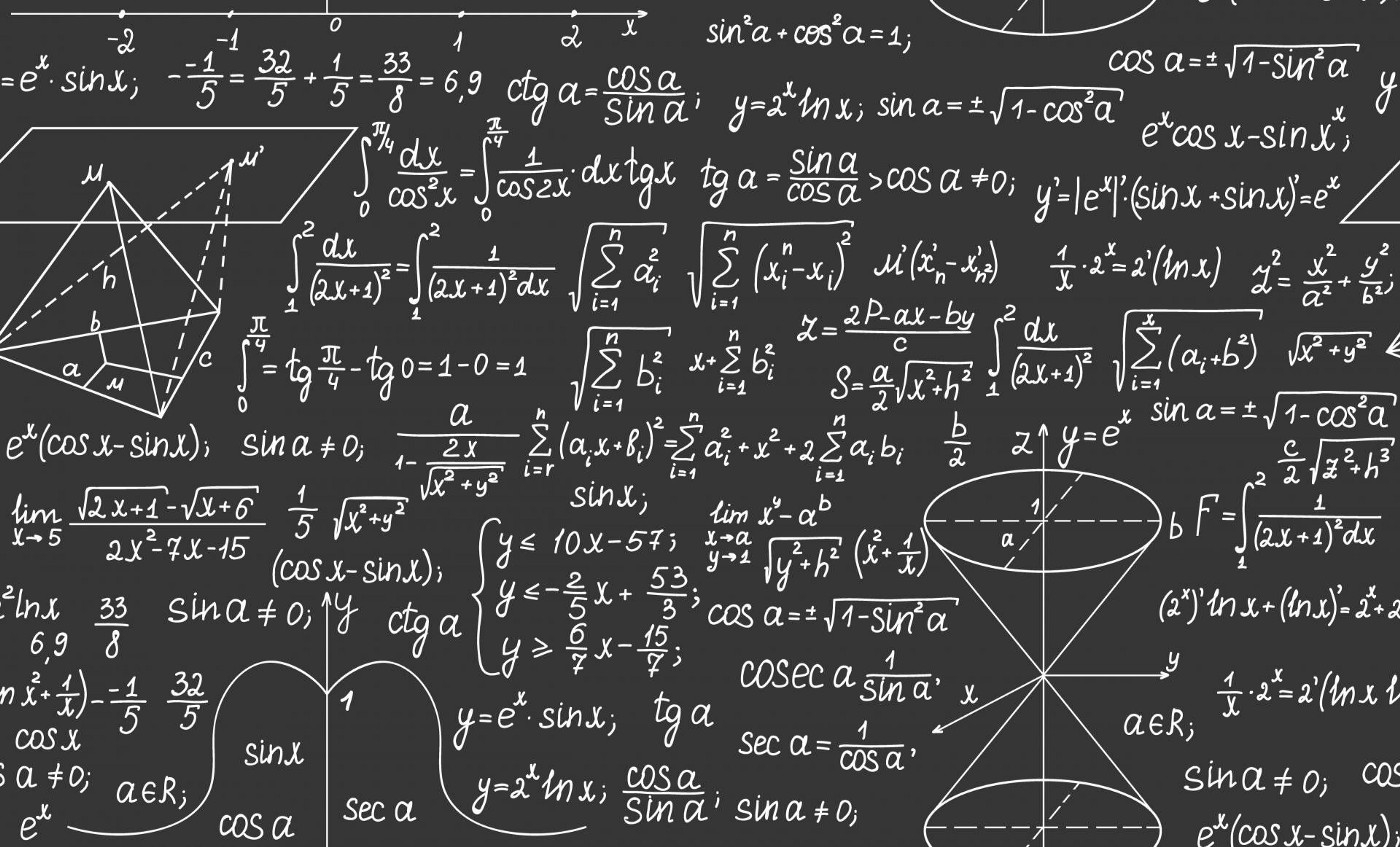 -2 -1 0 1 2 x
sin²a + cos²a = 1;
cos a = ± √(1-sin²a)
y
= eˣ · sin x;
- -1/5 = 32/5 + 1/5 = 33/8 = 6,9
ctg a = cos a / sin a ;
y = 2ˣ ln x;
sin a = ± √(1-cos²a)
eˣcos x - sin xˣ;
M M'
∫₀^(π/4) dx/cos²x = ∫₀^(π/4) 1/cos2x · dx tgx
tg a = sin a / cos a > cos a ≠ 0;
y' = |eˣ|'·(sinx + sinx)' = eˣ
h
∫₁² dx/(2x+1)² = ∫₁² 1/(2x+1)²dx
√(∑_(i=1)^n a_i²)
√(∑_(i=1)^n (x_i^n - x_i)²)
M'(x'_n - x'_n²)
1/x · 2ˣ = 2'(ln x)
z² = x²/a² + y²/b²;
b
a M c
∫₀^(π/4) = tg π/4 - tg 0 = 1 - 0 = 1
√(∑_(i=1)^n b_i²)
x + ∑_(i=1)^n b_i²
z = (2P - ax - by)/c
S = a/2 √(x²+h²)
∫₁² dx/(2x+1)²
√(∑_(i=1)^x (a_i + b²))
√(x² + y²)
eˣ(cos x - sin x);
sin a ≠ 0;
a/(1 - 2x/√(x² + y²))
∑_(i=r)^n (a_i x + b_i)² = ∑_(i=1)^n a_i² + x² + 2∑_(i=1)^n a_i b_i
b/2
z y = eˣ
sin a = ± √(1-cos²a)
c/2 √(z²+h³)
lim x→5 (√(2x+1) - √(x+6))/(2x²-7x-15)
1/5 √(x²+y²)
sin x;
lim x→a y→1 xʸ - aᵇ
√(y²+h²) (x² + 1/x)
1
a
b
F = ∫₁² 1/(2x+1)²dx
(cos x - sin x);
y ≤ 10x - 57;
y ≤ - 2/5 x + 53/3;
y ≥ 6/7 x - 15/7;
²ln x
33/8
6,9
sin a ≠ 0;
y
ctg a
cos a = ± √(1-sin²a)
(2ˣ)' ln x + (ln x)' = 2ˣ + 2
x² + 1/x) - -1/5
32/5
1
cosec a 1/sin a,
x
y
1/x · 2ˣ = 2'(ln x
cos x
y = eˣ · sin x;
tg a
sec a = 1/cos a,
a ∈ R;
sin x
a ≠ 0;
a ∈ R;
y = 2ˣ ln x;
cos a / sin a ;
sin a ≠ 0;
sin a ≠ 0;
eˣ
cos a
sec a
eˣ(cos x - sin x);